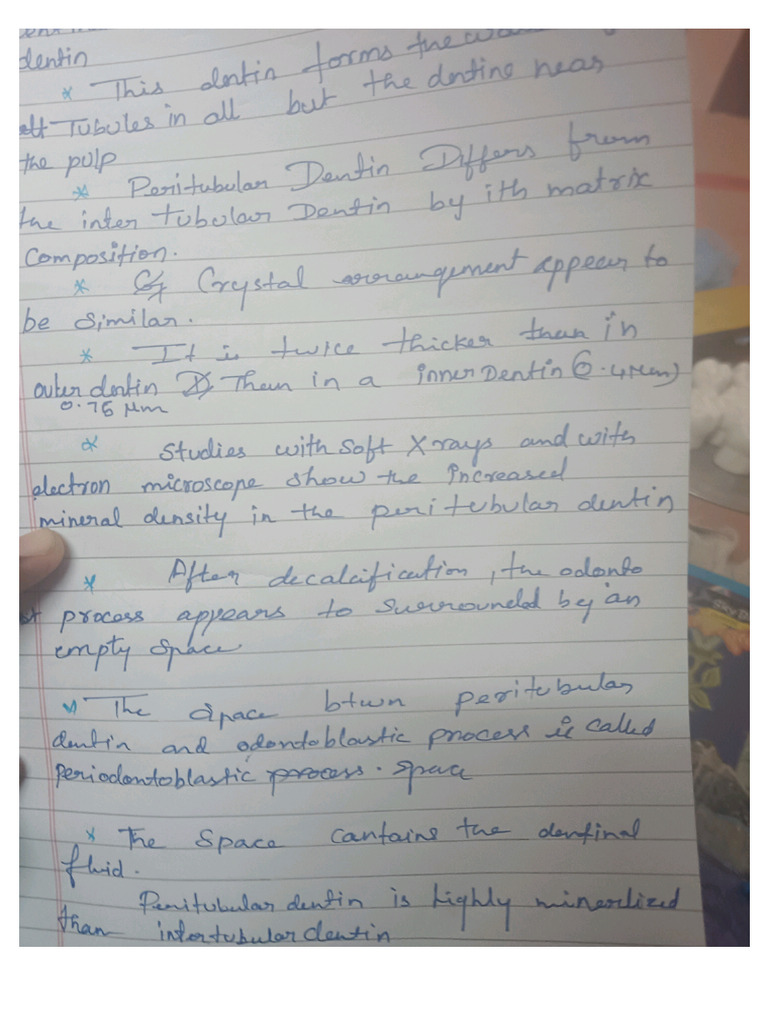 dentin
* This dentin forms the
Tubules in all but the dentine near
the pulp
* Peritubular Dentin Differs from
the inter tubular Dentin by ith matrix
Composition.
* Crystal arrangement appear to
be similar.
* It is twice thicker than in
outer dentin Than in a inner Dentin
0.75 μm
* Studies with soft X rays and with
electron microscope show the increased
mineral density in the peritubular dentin
* After decalcification, the odonto
process appears to surrounded by an
empty space
* The space btwn peritubular
dentin and odontoblastic process is called
periodontoblastic process. space
* The space contains the dentinal
fluid.
Peritubular dentin is highly mineralized
than intertubular dentin